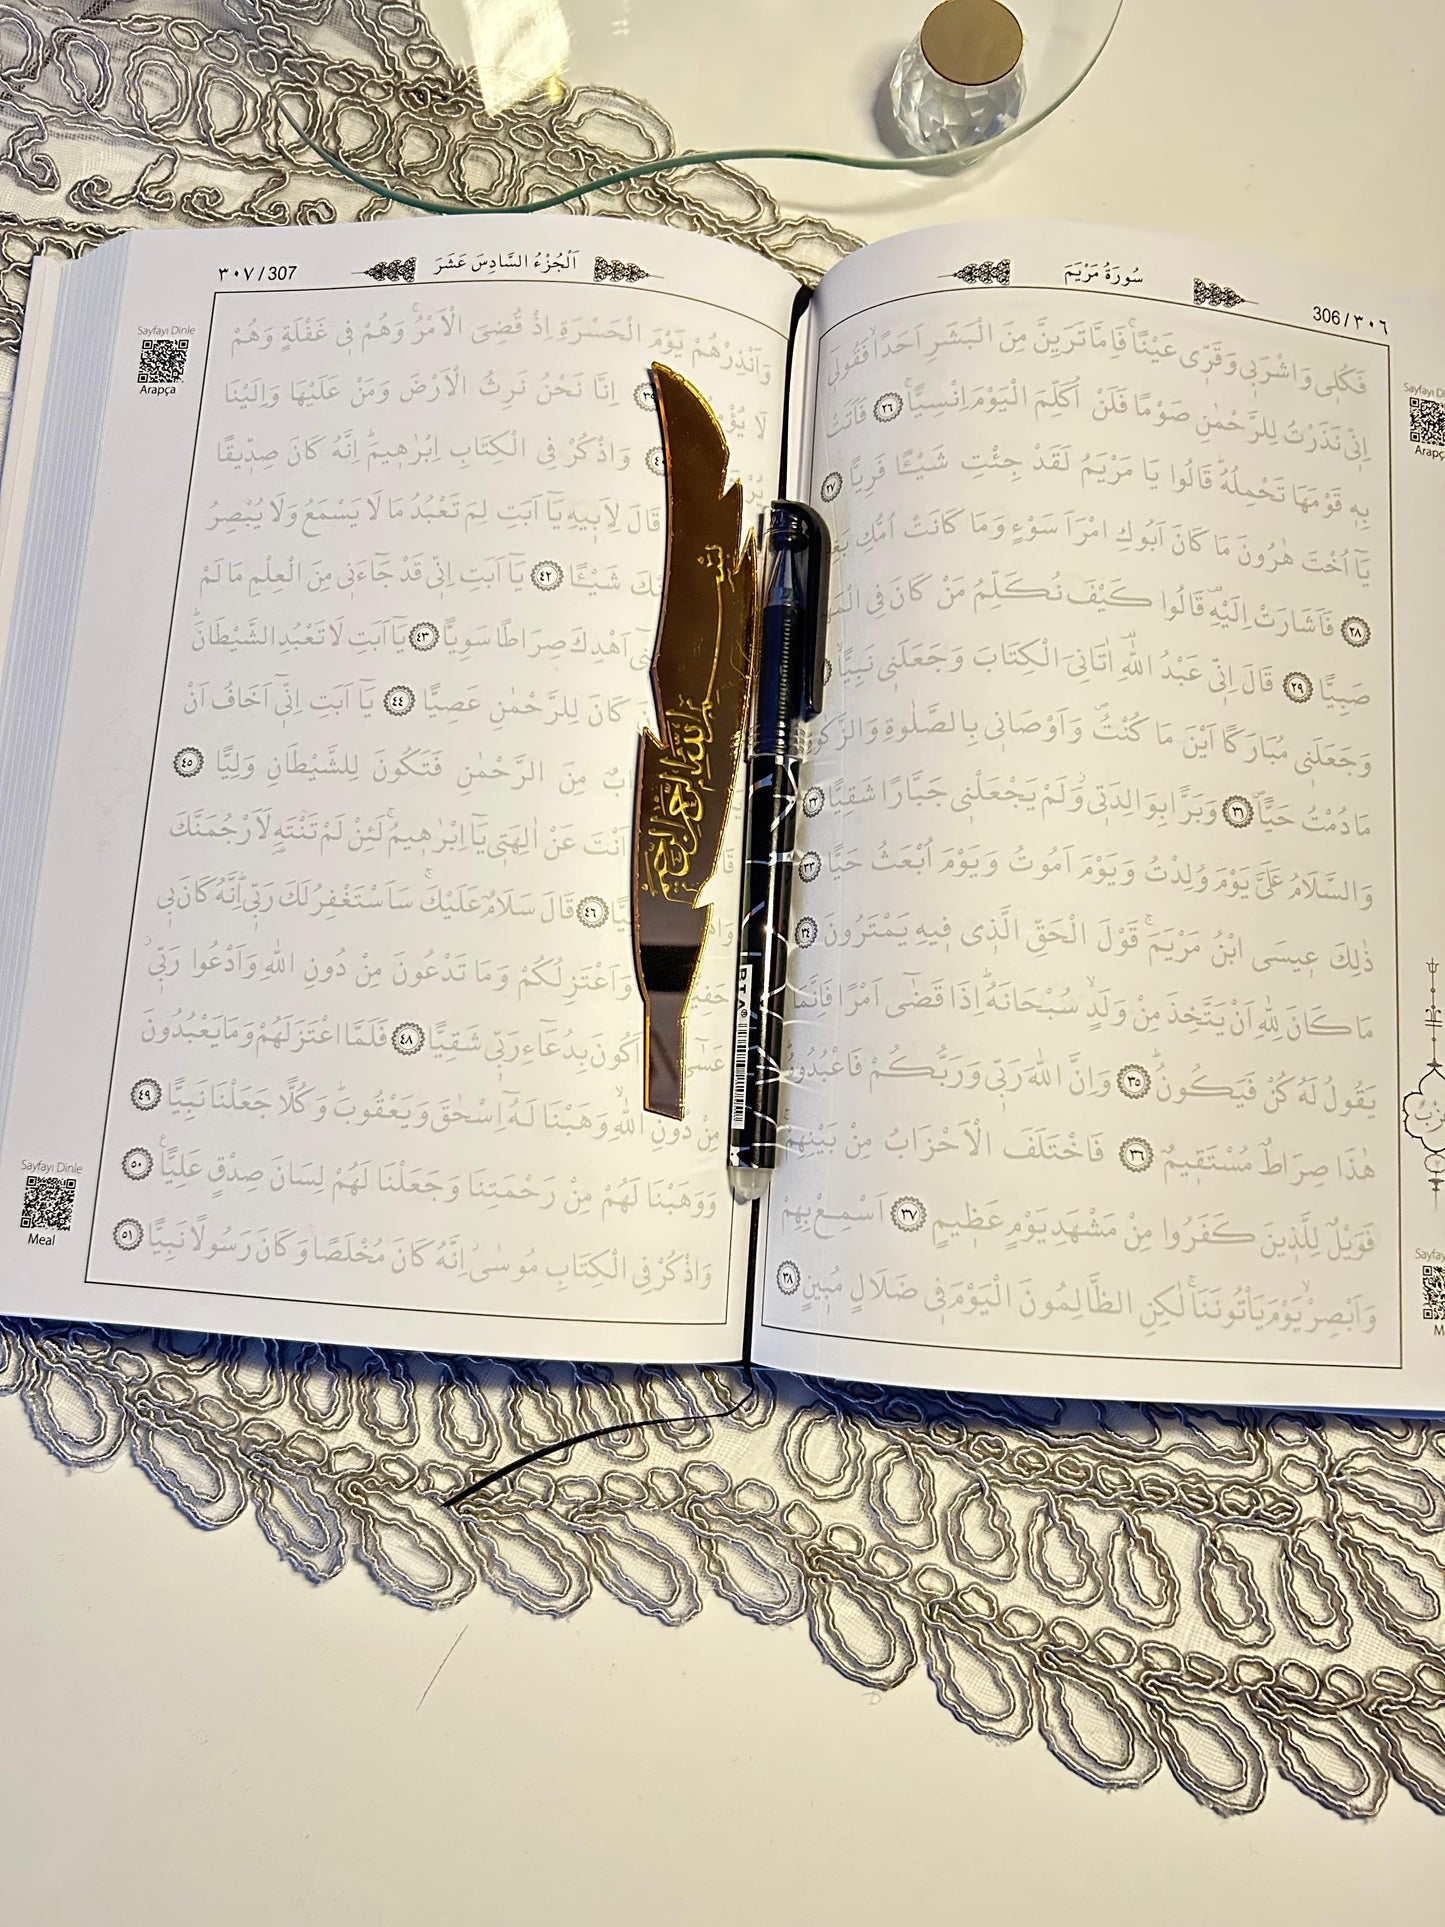 سُورَةُ مَرْيَمَ
306/٣٠٦
فَكُلِى وَاشْرَبِى وَقَرِّى عَيْنًاۚ فَاِمَّا تَرَيِنَّ مِنَ الْبَشَرِ اَحَدًاۙ فَقُولِى
اِنِّى نَذَرْتُ لِلرَّحْمٰنِ صَوْمًا فَلَنْ اُكَلِّمَ الْيَوْمَ اِنْسِيًّاۚ ٢٦ فَاَتَتْ
بِهِ قَوْمَهَا تَحْمِلُهُۜ قَالُوا يَا مَرْيَمُ لَقَدْ جِئْتِ شَيْـًٔا فَرِيًّا ٢٧
يَٓا اُخْتَ هٰرُونَ مَا كَانَ اَبُوكِ امْرَاَ سَوْءٍ وَمَا كَانَتْ اُمُّكِ
٢٨ فَاَشَارَتْ اِلَيْهِۜ قَالُوا كَيْفَ نُكَلِّمُ مَنْ كَانَ فِى
صَبِيًّا ٢٩ قَالَ اِنِّى عَبْدُ اللّٰهِ۠ اٰتَانِىَ الْكِتَابَ وَجَعَلَنِى نَبِيًّاۙ
وَجَعَلَنِى مُبَارَكًا اَيْنَ مَا كُنْتُۖ وَاَوْصَانِى بِالصَّلٰوةِ
مَا دُمْتُ حَيًّاۖ ٣١ وَبَرًّا بِوَالِدَتِى وَلَمْ يَجْعَلْنِى جَبَّارًا شَقِيًّا ٣٢
وَالسَّلَامُ عَلَىَّ يَوْمَ وُلِدْتُ وَيَوْمَ اَمُوتُ وَيَوْمَ اُبْعَثُ حَيًّا ٣٣
ذٰلِكَ عِيسَى ابْنُ مَرْيَمَۚ قَوْلَ الْحَقِّ الَّذِى فِيهِ يَمْتَرُونَ ٣٤
مَا كَانَ لِلّٰهِ اَنْ يَتَّخِذَ مِنْ وَلَدٍۙ سُبْحَانَهُۜ اِذَا قَضٰٓى اَمْرًا فَاِنَّمَا
يَقُولُ لَهُ كُنْ فَيَكُونُۜ ٣٥ وَاِنَّ اللّٰهَ رَبِّى وَرَبُّكُمْ فَاعْبُدُوهُۜ
هٰذَا صِرَاطٌ مُسْتَقِيمٌ ٣٦ فَاخْتَلَفَ الْاَحْزَابُ مِنْ بَيْنِهِمْۚ
فَوَيْلٌ لِلَّذِينَ كَفَرُوا مِنْ مَشْهَدِ يَوْمٍ عَظِيمٍ ٣٧ اَسْمِعْ بِهِمْ
وَاَبْصِرْۙ يَوْمَ يَأْتُونَنَاۚ لٰكِنِ الظَّالِمُونَ الْيَوْمَ فِى ضَلَالٍ مُبِينٍ ٣٨
٣٠٧/307
اَلْجُزْءُ السَّادِسَ عَشَرَ
Sayfayı Dinle
Arapça
وَاَنْذِرْهُمْ يَوْمَ الْحَسْرَةِ اِذْ قُضِىَ الْاَمْرُۚ وَهُمْ فِى غَفْلَةٍ وَهُمْ
لَا ٣٩ اِنَّا نَحْنُ نَرِثُ الْاَرْضَ وَمَنْ عَلَيْهَا وَاِلَيْنَا
وَاذْكُرْ فِى الْكِتَابِ اِبْرٰهِيمَۜ اِنَّهُ كَانَ صِدِّيقًا
قَالَ لِاَبِيهِ يَٓا اَبَتِ لِمَ تَعْبُدُ مَا لَا يَسْمَعُ وَلَا يُبْصِرُ
شَيْـًٔا ٤٢ يَٓا اَبَتِ اِنِّى قَدْ جَٓاءَنِى مِنَ الْعِلْمِ مَا لَمْ
اَهْدِكَ صِرَاطًا سَوِيًّا ٤٣ يَٓا اَبَتِ لَا تَعْبُدِ الشَّيْطَانَۜ
كَانَ لِلرَّحْمٰنِ عَصِيًّا ٤٤ يَٓا اَبَتِ اِنِّٓى اَخَافُ اَنْ
مِنَ الرَّحْمٰنِ فَتَكُونَ لِلشَّيْطَانِ وَلِيًّا ٤٥
اَنْتَ عَنْ اٰلِهَتِى يَٓا اِبْرٰهِيمُۚ لَئِنْ لَمْ تَنْتَهِ لَاَرْجُمَنَّكَ
٤٦ قَالَ سَلَامٌ عَلَيْكَۚ سَاَسْتَغْفِرُ لَكَ رَبِّىۜ اِنَّهُ كَانَ بِى
وَاَعْتَزِلُكُمْ وَمَا تَدْعُونَ مِنْ دُونِ اللّٰهِ وَاَدْعُوا رَبِّىۘ
عَسٰٓى اَكُونَ بِدُعَٓاءِ رَبِّى شَقِيًّا ٤٨ فَلَمَّا اعْتَزَلَهُمْ وَمَا يَعْبُدُونَ
مِنْ دُونِ اللّٰهِۙ وَهَبْنَا لَهُٓ اِسْحٰقَ وَيَعْقُوبَۜ وَكُلًّا جَعَلْنَا نَبِيًّا ٤٩
وَوَهَبْنَا لَهُمْ مِنْ رَحْمَتِنَا وَجَعَلْنَا لَهُمْ لِسَانَ صِدْقٍ عَلِيًّا۟ ٥٠
وَاذْكُرْ فِى الْكِتَابِ مُوسٰىۘ اِنَّهُ كَانَ مُخْلَصًا وَكَانَ رَسُولًا نَبِيًّا ٥١
Sayfayı Dinle
Meal
بسم الله الرحمن الرحيم